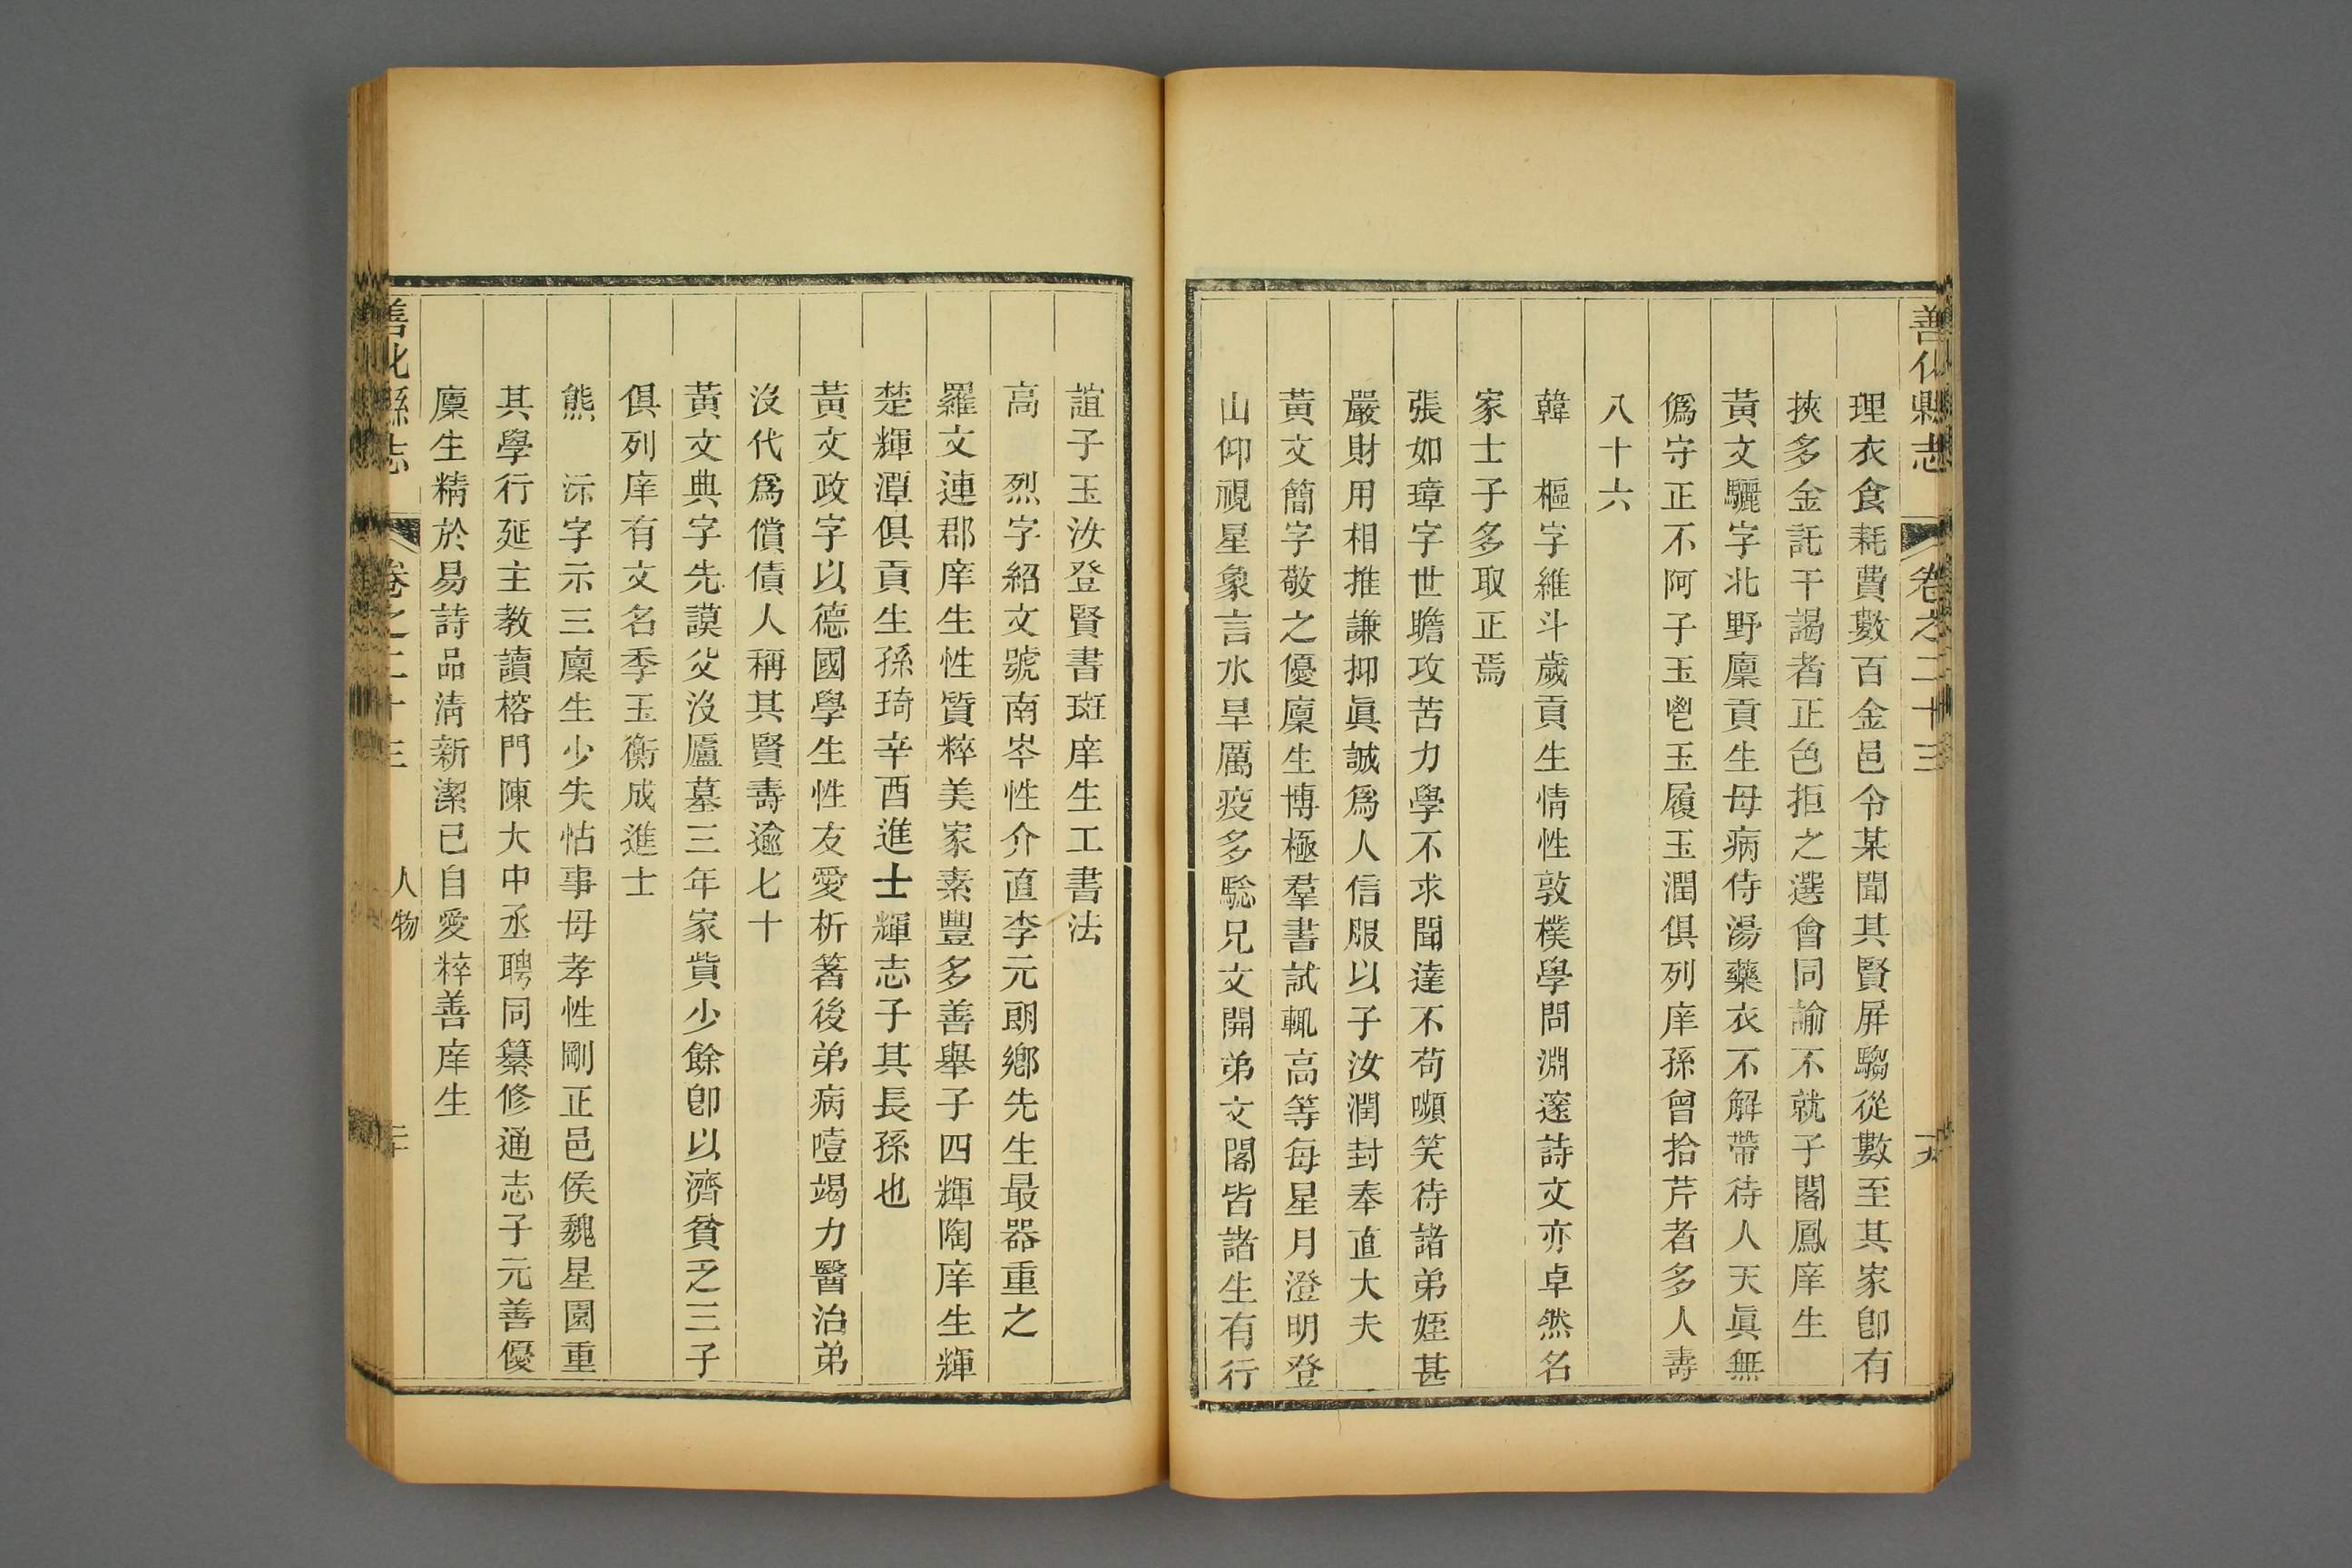 善化縣志 卷之二十三
理衣食耗費數百金邑令某聞其賢屏騶從數至其家卽有
挾多金託干謁者正色拒之選會同諭不就子閣鳳庠生
黃文驪字北野廩貢生母病侍湯藥衣不解帶待人天眞無
僞守正不阿子玉鬯玉履玉潤俱列庠孫曾拾芹者多人壽
八十六
韓 樞字維斗歲貢生情性敦樸學問淵邃詩文亦卓然名
家士子多取正焉
張如璋字世瞻攻苦力學不求聞達不苟嚬笑待諸弟姪甚
嚴財用相推謙抑眞誠爲人信服以子汝潤封奉直大夫
黃文簡字敬之優廩生博極羣書試輒高等每星月澄明登
山仰視星象言水旱厲疫多驗兄文開弟文閣皆諸生有行
誼子玉汝登賢書斑庠生工書法
高 烈字紹文號南岑性介直李元朗鄉先生最器重之
羅文連郡庠生性質粹美家素豐多善舉子四輝陶庠生輝
楚輝潭俱貢生孫琦辛酉進士輝志子其長孫也
黃文政字以德國學生性友愛析箸後弟病噎竭力醫治弟
沒代爲償債人稱其賢壽逾七十
黃文典字先謨父沒廬墓三年家貲少餘卽以濟貧乏三子
俱列庠有文名季玉衡成進士
熊 沶字示三廩生少失怙事母孝性剛正邑侯魏星園重
其學行延主教讀榕門陳大中丞聘同纂修通志子元善優
廩生精於易詩品清新潔已自愛粹善庠生
善化縣志 卷之二十三 人物